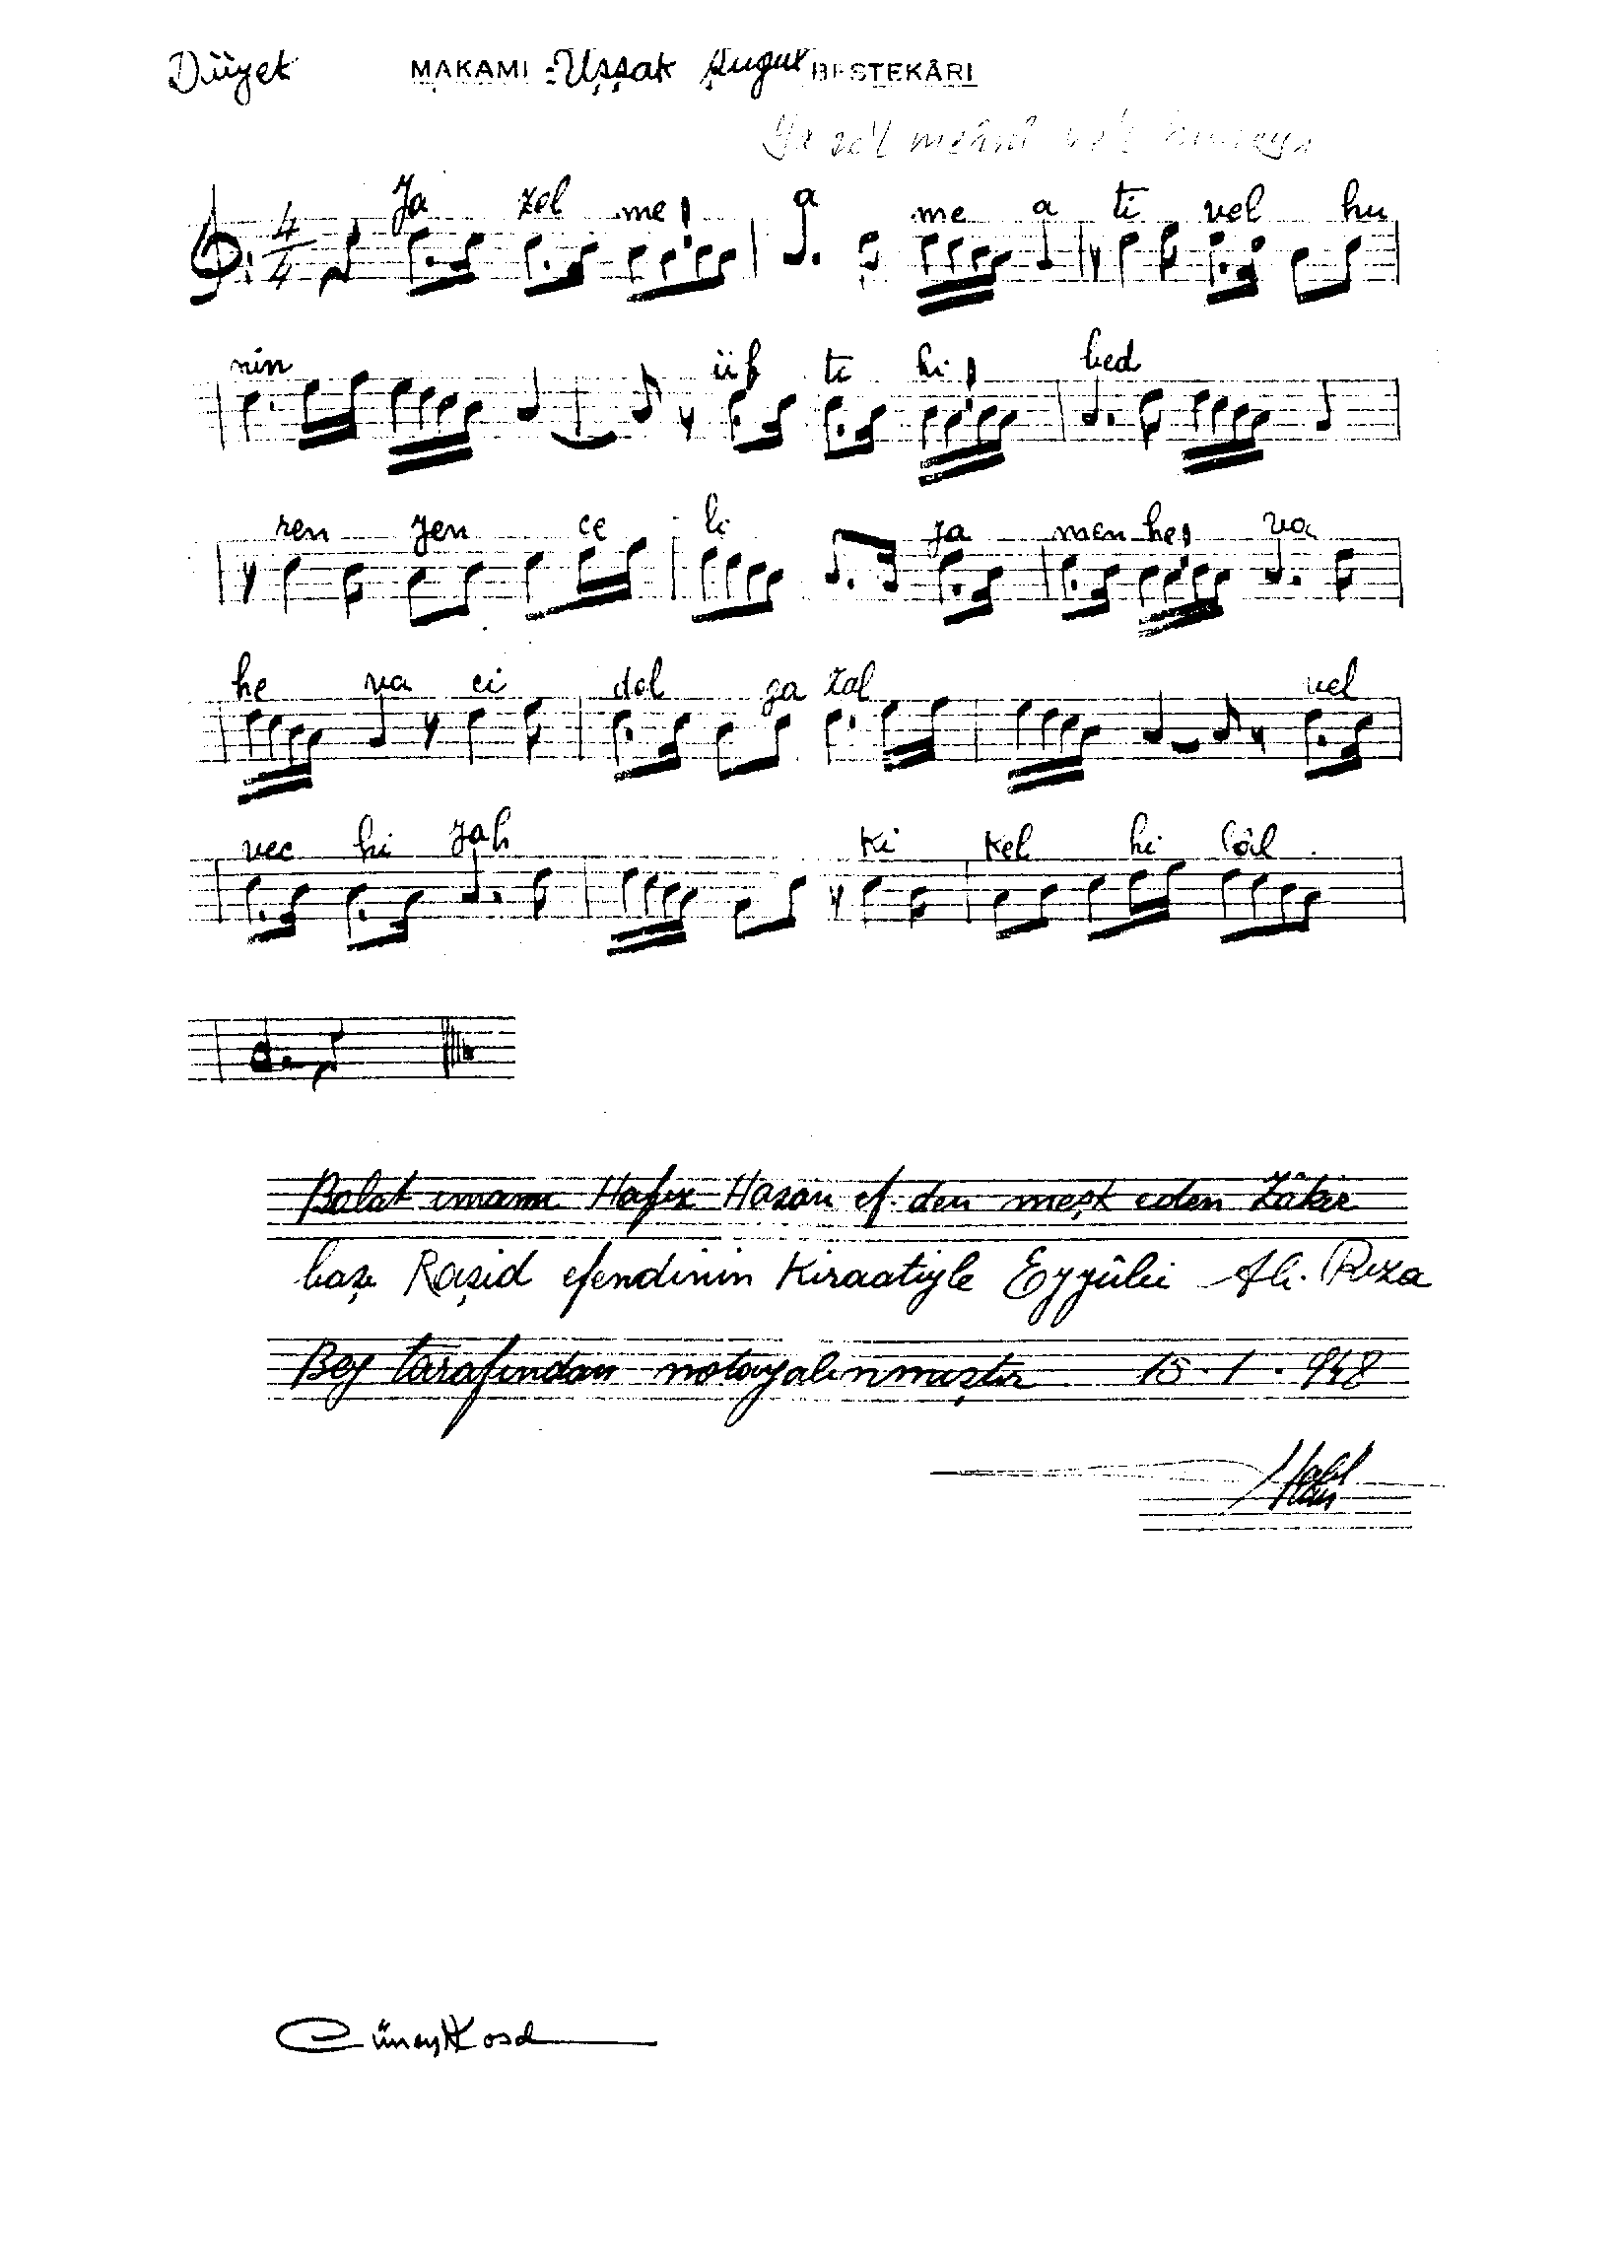 Düyek MAKAMI : Uşşak Şugul BESTEKÂRI
Ya zel meâni ve'l
Ya zel me a me a ti vel hu
nin üf te hi bed
ren yen ce li ya men he va
he va ci del ga tal vel
vec hi yah ki kel hi lâl
Balat imamı Hafız Hasan ef. den meşk eden Zâkir
başı Raşid efendinin kıraatiyle Eyyûbi Ali Rıza
Bey tarafından notaya alınmıştır 15.1.948
Halil Can
Cüneyd Kosal